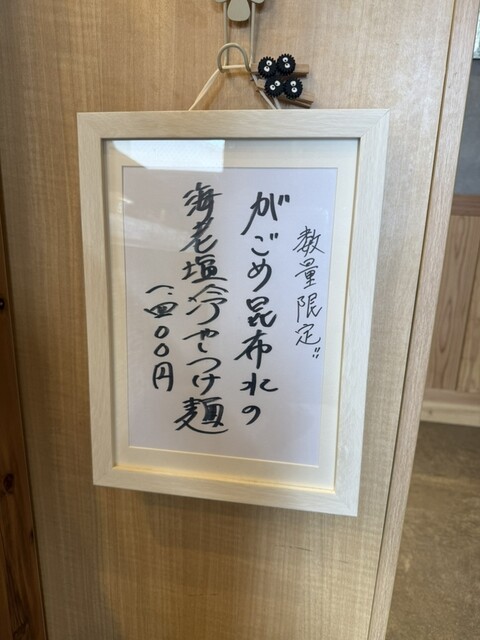 数量限定!!
がごめ昆布水の
海老塩冷やつけ麺
一、四〇〇円